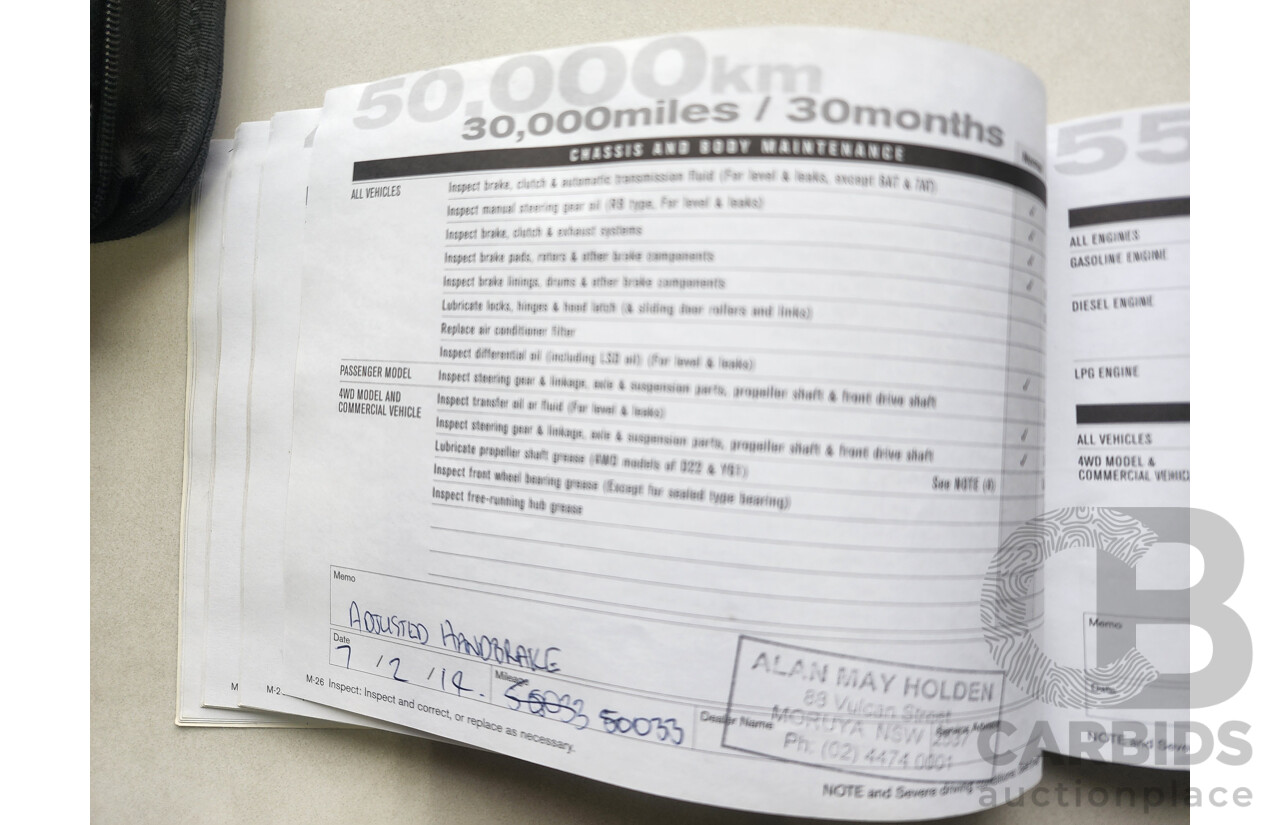 50,000km
30,000miles / 30months
CHASSIS AND BODY MAINTENANCE
ALL VEHICLES
Inspect brake, clutch & automatic transmission fluid (For level & leaks, except
Inspect manual steering gear oil (RB type, For level & leaks)
Inspect brake, clutch & exhaust systems
Inspect brake pads, rotors & other brake components
Inspect brake linings, drums & other brake components
Lubricate locks, hinges & hood latch (& sliding door rollers and links)
Replace air conditioner filter
Inspect differential oil (including LSD oil) (For level & leaks)
PASSENGER MODEL
Inspect steering gear & linkage, axle & suspension parts, propeller shaft & front drive shaft
4WD MODEL AND
COMMERCIAL VEHICLE
Inspect transfer oil or fluid (For level & leaks)
Inspect steering gear & linkage, axle & suspension parts, propeller shaft & front drive shaft
Lubricate propeller shaft grease (4WD models of D22 & Y61)
See NOTE (4)
Inspect front wheel bearing grease (Except for sealed type bearing)
Inspect free-running hub grease
Memo
ADJUSTED HANDBRAKE
Date
7 / 2 / 14.
Mileage
50033
Dealer Name
ALAN MAY HOLDEN
88 Vulcan Street
MORUYA NSW 2537
Ph: (02) 4474 0001
M-26 Inspect: Inspect and correct, or replace as necessary.
NOTE and Severe driving
M
M-2
55
ALL ENGINES
GASOLINE ENGINE
DIESEL ENGINE
LPG ENGINE
ALL VEHICLES
4WD MODEL &
COMMERCIAL VEHIC
Memo
Date
NOTE and Seve
CB
CARBIDS
auctionplace